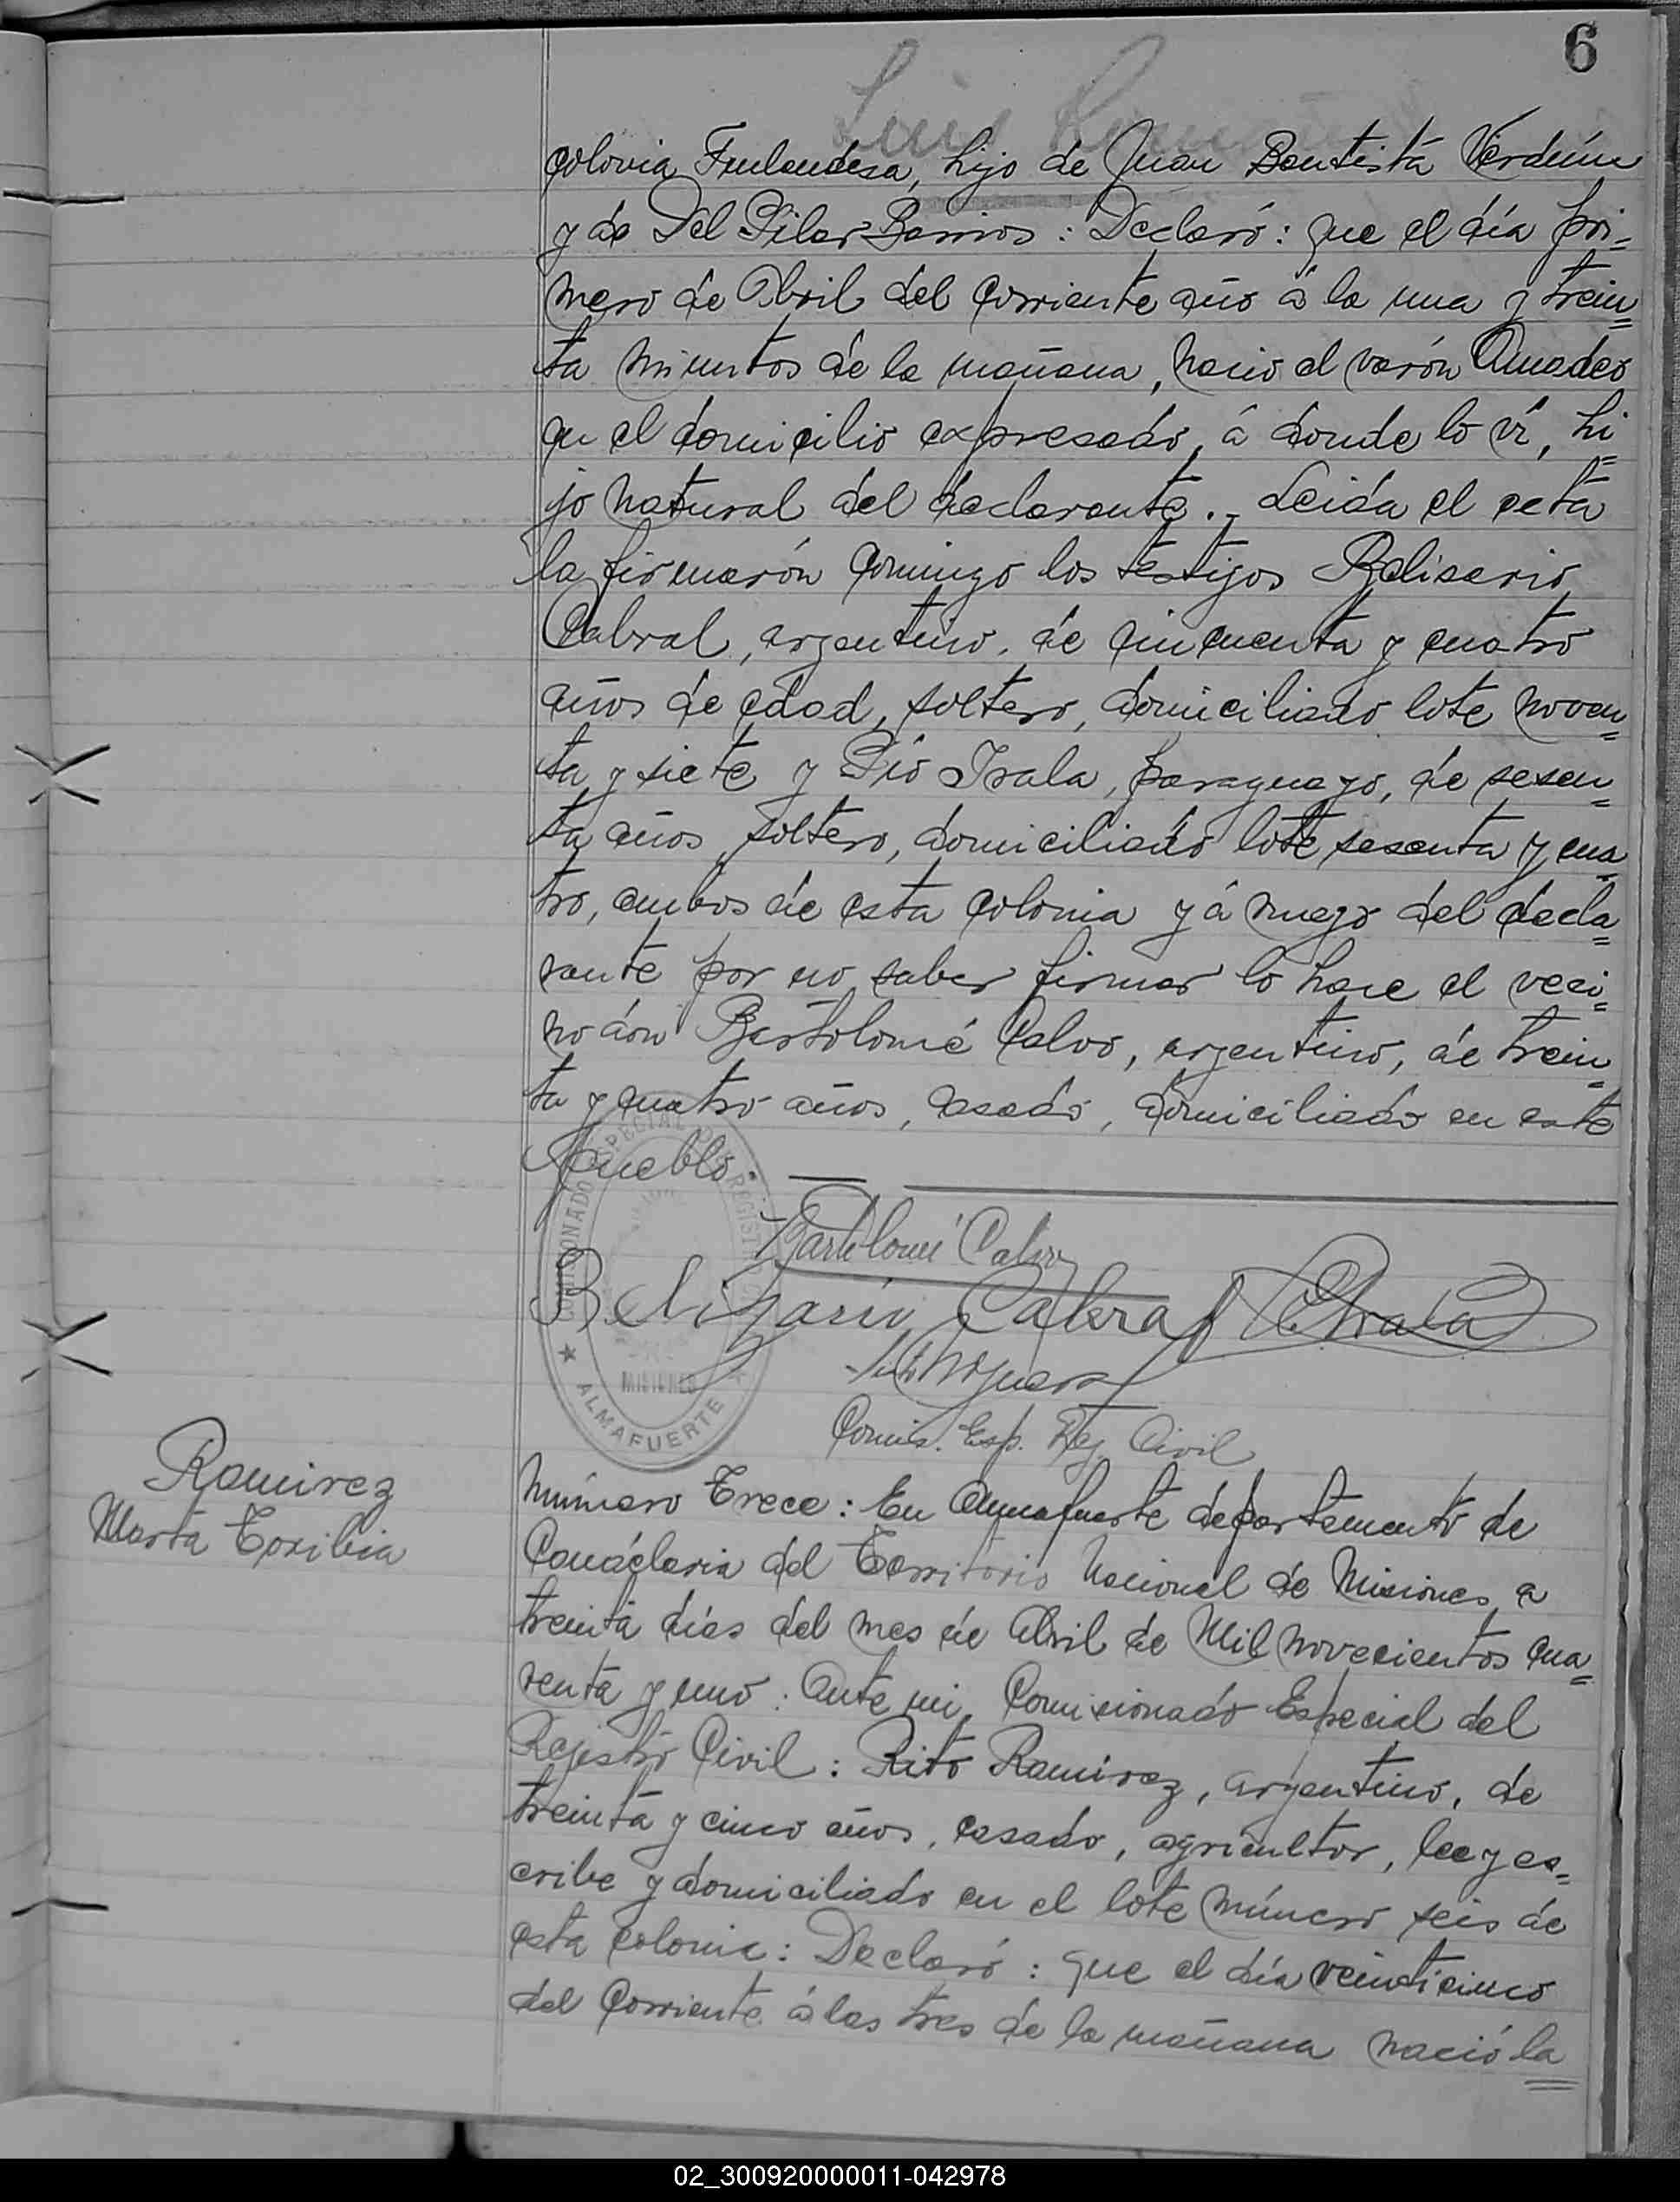 6
Luis
colonia Finlandesa, hijo de Juan Bautista Verdún
y de Del Pilar Barrios : Declaró : que el día pri=
mero de Abril del corriente año á la una y trein=
ta minutos de la mañana, nació el varón Amadeo
en el domicilio expresado, á donde lo ví, hi=
jo natural del declarante. - Leida el acta
la firmarón conmigo los testigos Belisario
Cabral, argentino, de cincuenta y cuatro
años de edad, soltero, domiciliado lote noven=
ta y siete y Pío Irala, paraguayo, de sesen=
ta años, soltero, domiciliado lote sesenta y cua=
tro, ambos de esta colonia y á ruego del decla=
rante por no saber firmar lo hace el veci=
no don Bartolomé Calvo, argentino, de trein=
ta y cuatro años, casado, domiciliado en este
pueblo. —
COMISIONADO ESPECIAL DEL REGISTRO
MISIONES
★ ALMAFUERTE ★
Bartolomé Calvo
Belizario Cabral P Irala
Comis. Esp. Reg Civil
Ramirez
Marta Toribia
Número Trece : En Almafuerte departamento de
Candelaria del Territorio Nacional de Misiones, a
treinta días del mes de Abril de Mil novecientos cua=
renta y uno : Ante mi, Comisionado Especial del
Registro Civil : Rito Ramirez, argentino, de
treinta y cinco años, casado, agricultor, lee y es=
cribe y domiciliado en el lote número seis de
esta colonia : Declaró : que el día veinticinco
del Corriente á las tres de la mañana nació la
02_300920000011-042978